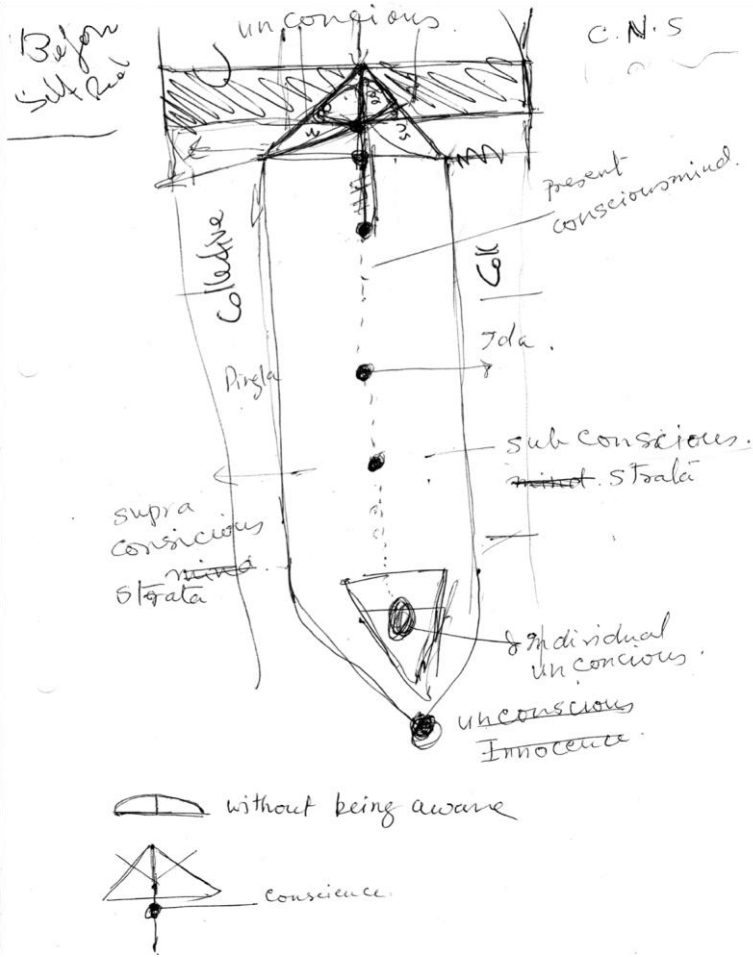 unconcious.
C.N.S
Before
Self
present
consciousmind.
Collective
Coll
Ida.
Pingla
sub conscious.
mind. Strata
supra
consicious
mind.
Strata
Individual
unconcious.
unconscious
Innocence.
without being aware
conscience.